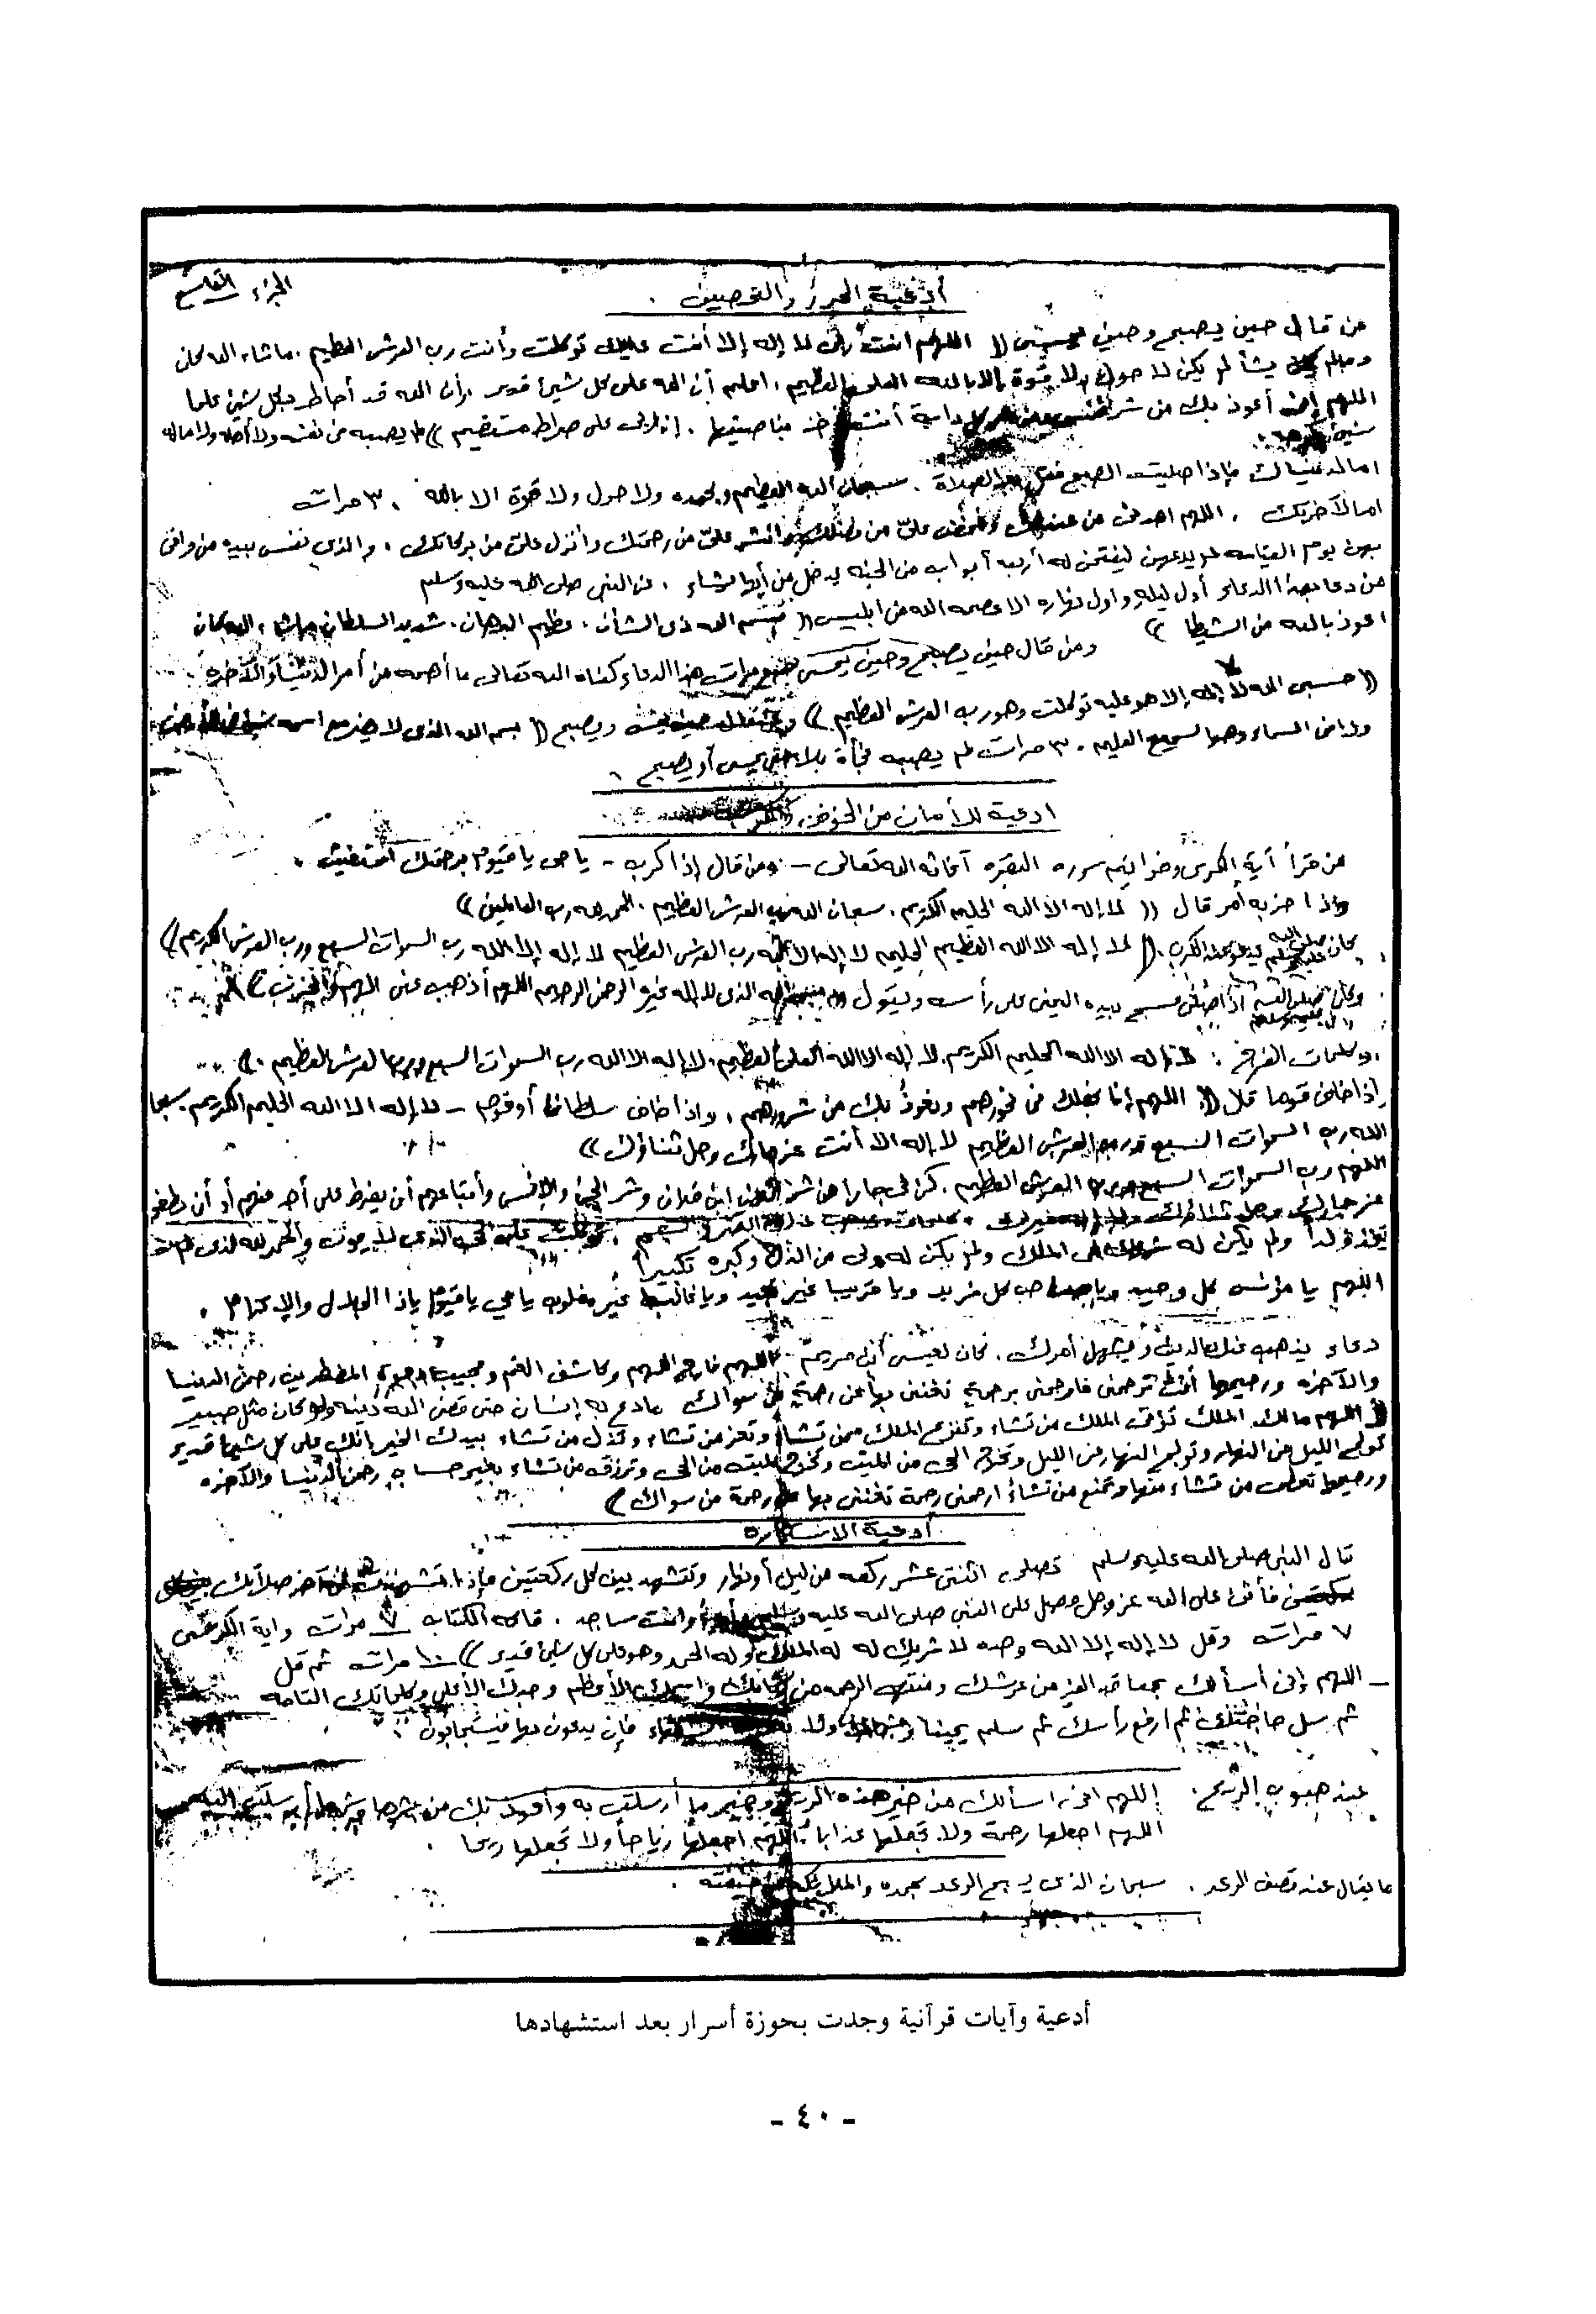 الجزء التاسع
أدعية الحرز والتحصين .
من قال حين يصبح وحين يمسى (( اللهم أنت ربى لا إله إلا أنت عليك توكلت وأنت رب العرش العظيم . ما شاء الله كان
ومالم يشأ لم يكن لا حول ولا قوة إلا بالله العلى العظيم . اعلم أن الله على كل شيئ قدير . وأن الله قد أحاط بكل شيئ علما
اللهم إنى أعوذ بك من شر نفسى ومن شر كل دابة أنت آخذ بناصيتها . إن ربى على صراط مستقيم )) لم يصبه من نفسه ولا أهله ولا ماله
شيئ
اما لدنياك فإذا صليت الصبح فقل بعد الصلاة . سبحان الله العظيم وبحمده ولا حول ولا قوة الا بالله ٣ مرات
اما لآخرتك . اللهم اهدنى من عندك وأفض علىّ من فضلك وانشر علىّ من رحمتك وأنزل علىّ من بركاتك . والذى نفسى بيده من وافى
بهن يوم القيامه لم يدعهن ليفتحن له أربعه أبواب من الجنه يدخل من أيها شاء . عن النبى صلى الله عليه وسلم
من دعا بهذا الدعاء أول ليله واول نهاره الا عصمه الله من ابليس (( بسم الله ذى الشأن . عظيم البرهان . شديد السلطان ماشاء الله كان
اعوذ بالله من الشيطا ))
ومن قال حين يصبح وحين يمسى سبع مرات هذا الدعاء كفاه الله تعالى ما أهمه من أمر الدنيا والآخره
(( حسبى الله لا إله إلا هو عليه توكلت وهو رب العرش العظيم )) ويصبح (( بسم الله الذى لا يضر مع اسمه شيئ فى الأرض
ولا فى السماء وهو السميع العليم . ٣ مرات لم يصبه فجأة بلاء حتى يمسى أو يصبح .
ادعية للأمان من الخوف
من قرأ آية الكرسى وخواتيم سوره البقره آغاثه الله تعالى – ومن قال إذا كرب – يا حى يا قيوم برحمتك استغيث .
واذا حزبه أمر قال (( لا إله الا الله الحليم الكريم . سبحان الله رب العرش العظيم . الحمد لله رب العالمين ))
كان صلى الله عليه وسلم يدعو عند الكرب . (( لا إله الا الله العظيم الحليم لا إله الا الله رب العرش العظيم لا إله إلا الله رب السموات السبع ورب العرش الكريم ))
وكان صلى الله عليه وسلم اذا مسح بيده اليمنى على رأسه ويقول (( بسم الله الذى لا إله غيره الرحمن الرحيم اللهم أذهب عنى الهم والحزن ))
وكلمات الفرج : لا إله الا الله الحليم الكريم لا إله الا الله العلى العظيم . لا إله الا الله رب السموات السبع ورب العرش العظيم . ))
إذا خاف قوما قال (( اللهم إنا نجعلك فى نحورهم ونعوذ بك من شرورهم . واذا خاف سلطانا أو قوم – لا إله الا الله الحليم الكريم . سبحا
الله رب السموات السبع ورب العرش العظيم لا إله الا أنت عز جارك وجل ثناؤك ))
اللهم رب السموات السبع ورب العرش العظيم . كن لى جارا من شر فلان ابن فلان وشر الجن والإنس وأتباعهم أن يفرط على أحد منهم أو أن يطغى
عز جارك وجل ثناؤك ولا إله غيرك . توكلت على الحى الذى لا يموت والحمد لله الذى لم
يتخذ ولداً ولم يكن له شريك فى الملك ولم يكن له ولى من الذل وكبره تكبيراً
اللهم يا مؤنس كل وحيد ويا صاحب كل فريد ويا قريبا غير بعيد ويا غالبا غير مغلوب يا حى يا قيوم ياذا الجلال والإكرام .
دعاء يذهب عنك الدين ويسهل أمرك . كان لعيسى ابن مريم اللهم فارج الهم وكاشف الغم ومجيب دعوة المضطرين رحمن الدنيا
والآخره ورحيمها أنت ترحمنى فارحمنى برحمة تغننى بها عن رحمة من سواك مادع به إنسان حتى قضى الله دينه ولو كان مثل صبير
اللهم مالك الملك تؤتى الملك من تشاء وتنزع الملك ممن تشاء وتعز من تشاء وتذل من تشاء بيدك الخير إنك على كل شيئ قدير
تولج الليل من النهار وتولج النهار من الليل وتخرج الحى من الميت وتخرج الميت من الحى وترزق من تشاء بغير حساب رحمن الدنيا والآخره
ورحيمها تعطى من تشاء منها وتمنع من تشاء ارحمنى رحمة تغننى بها عن رحمة من سواك ))
أدعية الاستخاره
قال النبى صلى الله عليه وسلم تصلى اثنتى عشر ركعه من ليل أو نهار وتتشهد بين كل ركعتين فإذا تشهدت فى آخر صلاتك
فأثن على الله عز وجل وصل على النبى صلى الله عليه وسلم وأنت ساجد . فاتحه الكتاب ٧ مرات واية الكرسى
٧ مرات وقل لا إله إلا الله وحده لا شريك له له الملك وله الحمد وهو على كل شيئ قدير )) ١٠ مرات ثم قل
– اللهم إنى أسألك بمعاقد العز من عرشك ومنتهى الرحمه من كتابك واسمك الأعظم وجدك الأعلى وكلماتك التامه
ثم سل حاجتك ثم ارفع رأسك ثم سلم يمينا وشمالا ولا فإن يدعون بها فيستجابون
عند هبوب الريح . اللهم انى اسألك من خير هذه الريح وخير ما أرسلت به وأعوذ بك من شرها وشر ما أرسلت به
اللهم اجعلها رحمة ولا تجعلها عذابا . اللهم اجعلها رياحاً ولا تجعلها ريحا .
ما يقال عند قصف الرعد . سبحان الذى يسبح الرعد بحمده والملائكة من خيفته .
أدعية وآيات قرآنية وجدت بحوزة أسرار بعد استشهادها
- ٤٠ -